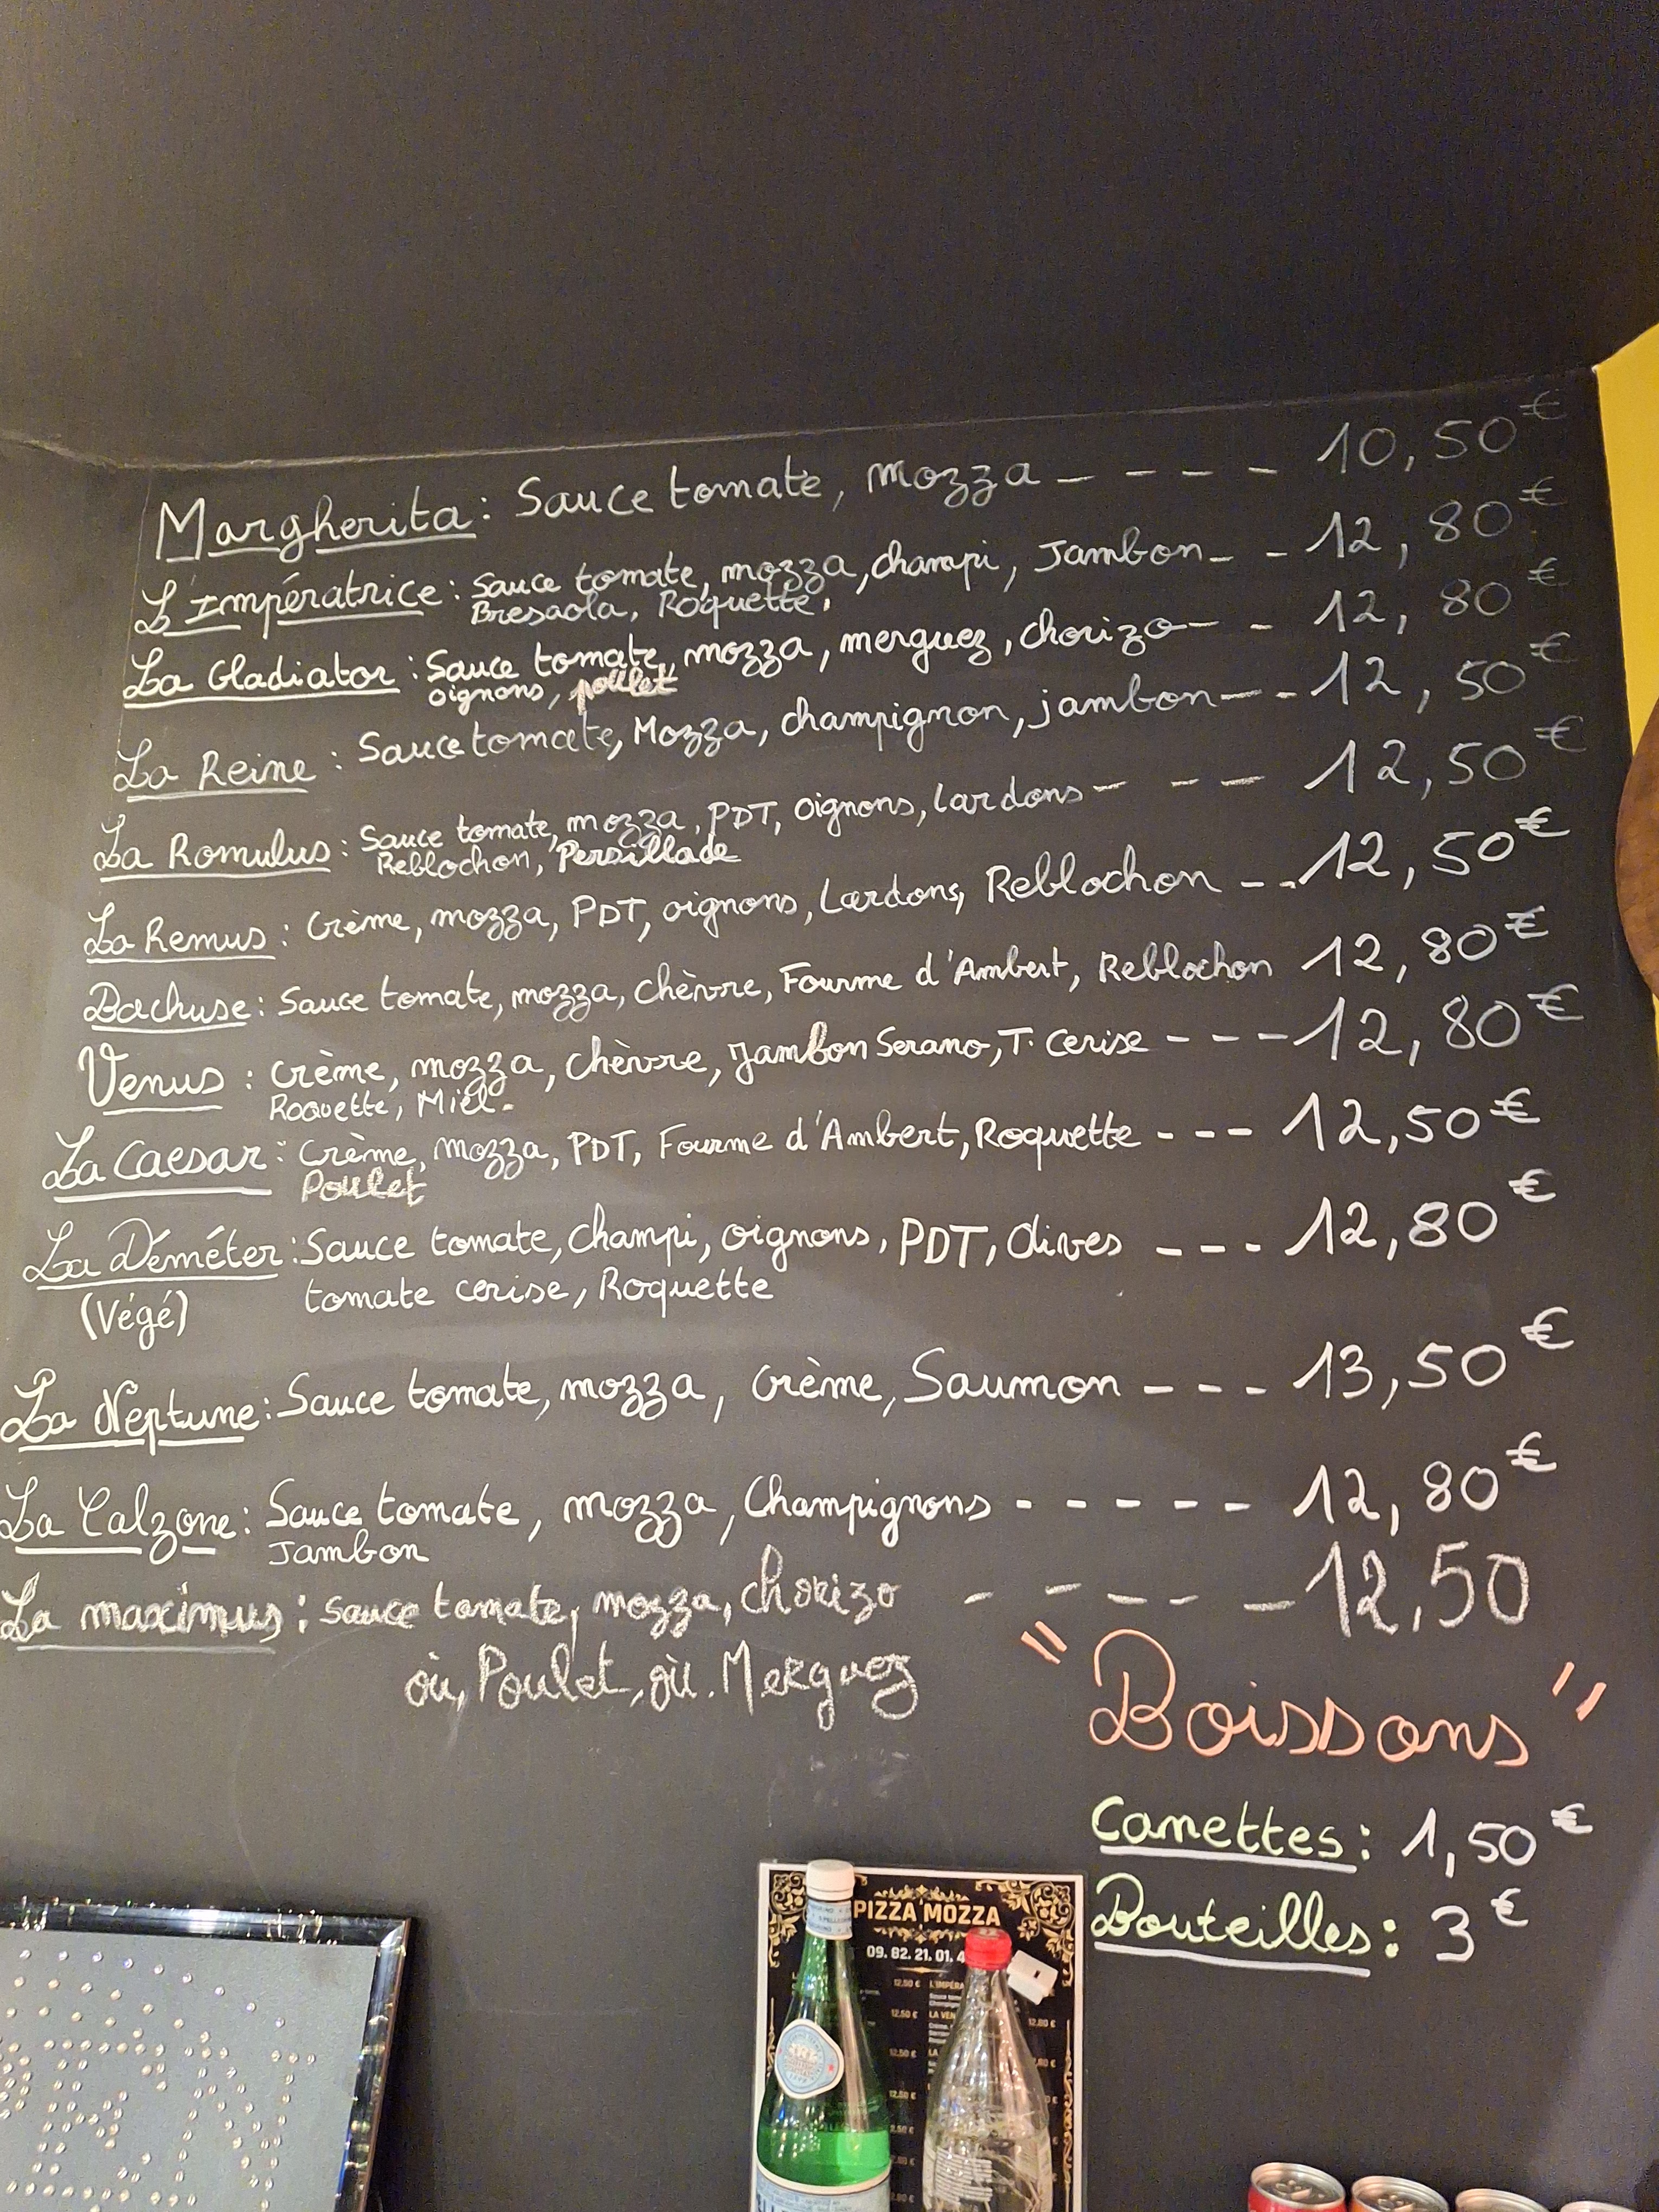 Margherita : Sauce tomate, mozza - - - - 10,50€
L'Impératrice : Sauce tomate, mozza, champi, Jambon - - 12,80€
Bresaola, Roquette.
La Gladiator : Sauce tomate, mozza, merguez, chorizo - - 12,80€
oignons, poulet
La Reine : Sauce tomate, Mozza, champignon, jambon - - 12,50€
La Romulus : Sauce tomate, mozza, PDT, oignons, lardons - - - 12,50€
Reblochon, Persillade
La Remus : Crème, mozza, PDT, oignons, Lardons, Reblochon - - 12,50€
Bachuse : Sauce tomate, mozza, chèvre, Fourme d'Ambert, Reblochon 12,80€
Venus : Crème, mozza, chèvre, Jambon Serano, T. cerise - - - 12,80€
Roquette, Miel.
La Caesar : Crème, mozza, PDT, Fourme d'Ambert, Roquette - - - 12,50€
Poulet
La Déméter : Sauce tomate, champi, oignons, PDT, Olives - - - 12,80€
(Végé) tomate cerise, Roquette
La Neptune : Sauce tomate, mozza, crème, Saumon - - - 13,50€
La Calzone : Sauce tomate, mozza, Champignons - - - - - 12,80€
Jambon
La maximus : sauce tomate, mozza, chorizo - - - - - 12,50
où, Poulet, où. Merguez
"Boissons"
Canettes : 1,50€
Bouteilles : 3€
PIZZA MOZZA
09. 82. 21. 01. 4
12,50 €
12,50 €
12,80 €